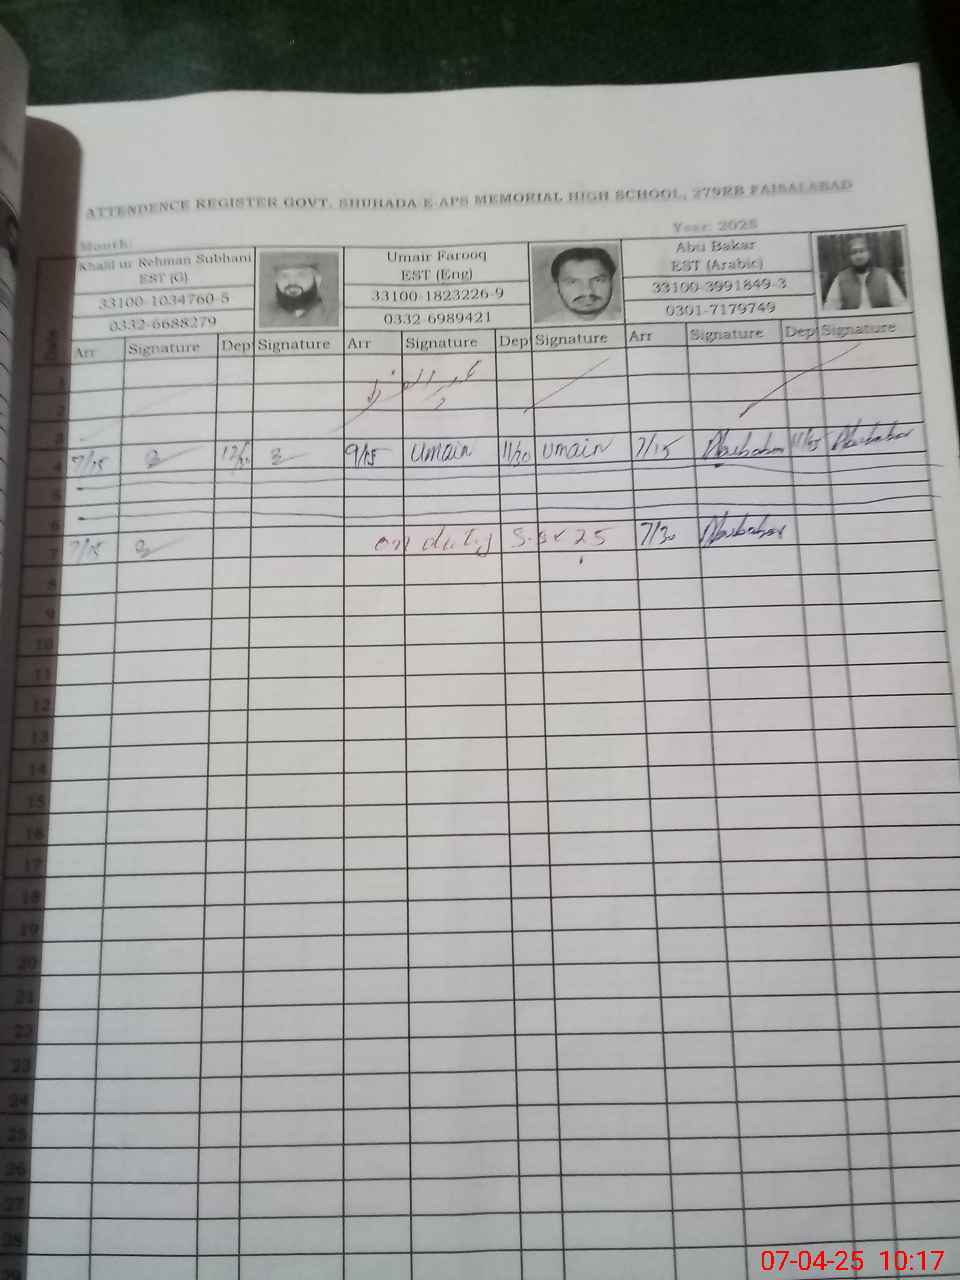 ATTENDENCE REGISTER GOVT. SHUHADA-E-APS MEMORIAL HIGH SCHOOL, 279RB FAISALABAD
Month: Year: 2025
Khalil ur Rehman Subhani Umair Farooq Abu Bakar
EST (G) EST (Eng) EST (Arabic)
33100-1034760-5 33100-1823226-9 33100-3991849-3
0332-6688279 0332-6989421 0301-7179749
Arr Signature Dep Signature Arr Signature Dep Signature Arr Signature Dep Signature
1
عید الفطر
2
3
4 7/15 9/15 Umair 11/30 Umair 7/15 Abubakar 11/15 Abubakar
5
6
7 7/15 on duty 7/30 Abubakar
8
9
10
11
12
13
14
15
16
17
18
19
20
21
22
23
24
25
26
27
28
29
07-04-25 10:17